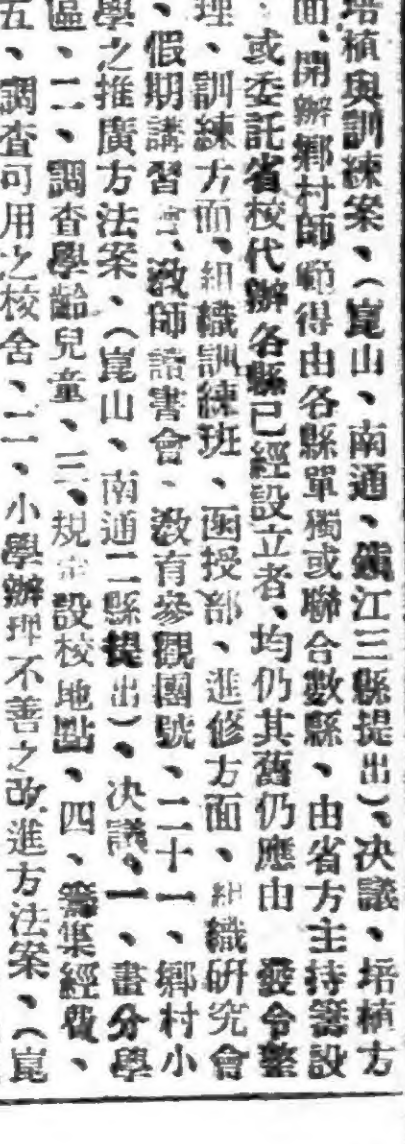 培植與訓練案、（崑山、南通、鎭江三縣提出）、决議、培植方
面、開辦鄉村師範得由各縣單獨或聯合數縣、由省方主持籌設
、或委託省校代辦各縣已經設立者、均仍其舊仍應由 發令整
理、訓練方面、組織訓練班、函授部、進修方面、組織研究會
、假期講習會、敎師讀書會、敎育參觀團號、二十一、鄉村小
學之推廣方法案、（崑山、南通二縣提出）、决議、一、畫分學
區、二、調查學齡兒童、三、規定設校地點、四、籌集經費、
五、調查可用之校舍、二、小學辦理不善之改進方法案、（崑